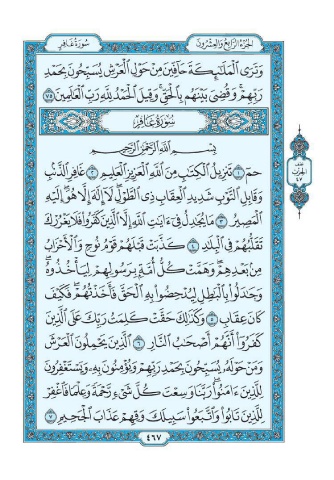 الجزء الرابع والعشرون
سورة غافر
وَتَرَى ٱلْمَلَٰٓئِكَةَ حَآفِّينَ مِنْ حَوْلِ ٱلْعَرْشِ يُسَبِّحُونَ بِحَمْدِ
رَبِّهِمْ ۖ وَقُضِىَ بَيْنَهُم بِٱلْحَقِّ وَقِيلَ ٱلْحَمْدُ لِلَّهِ رَبِّ ٱلْعَٰلَمِينَ ٧٥
سورة غافر
بِسْمِ ٱللَّهِ ٱلرَّحْمَٰنِ ٱلرَّحِيمِ
حمٓ ١ تَنزِيلُ ٱلْكِتَٰبِ مِنَ ٱللَّهِ ٱلْعَزِيزِ ٱلْعَلِيمِ ٢ غَافِرِ ٱلذَّنۢبِ
وَقَابِلِ ٱلتَّوْبِ شَدِيدِ ٱلْعِقَابِ ذِى ٱلطَّوْلِ ۖ لَآ إِلَٰهَ إِلَّا هُوَ ۖ إِلَيْهِ
ٱلْمَصِيرُ ٣ مَا يُجَٰدِلُ فِىٓ ءَايَٰتِ ٱللَّهِ إِلَّا ٱلَّذِينَ كَفَرُوا۟ فَلَا يَغْرُرْكَ
تَقَلُّبُهُمْ فِى ٱلْبِلَٰدِ ٤ كَذَّبَتْ قَبْلَهُمْ قَوْمُ نُوحٍ وَٱلْأَحْزَابُ
مِنۢ بَعْدِهِمْ ۖ وَهَمَّتْ كُلُّ أُمَّةٍۭ بِرَسُولِهِمْ لِيَأْخُذُوهُ ۖ
وَجَٰدَلُوا۟ بِٱلْبَٰطِلِ لِيُدْحِضُوا۟ بِهِ ٱلْحَقَّ فَأَخَذْتُهُمْ ۖ فَكَيْفَ
كَانَ عِقَابِ ٥ وَكَذَٰلِكَ حَقَّتْ كَلِمَتُ رَبِّكَ عَلَى ٱلَّذِينَ
كَفَرُوٓا۟ أَنَّهُمْ أَصْحَٰبُ ٱلنَّارِ ٦ ٱلَّذِينَ يَحْمِلُونَ ٱلْعَرْشَ
وَمَنْ حَوْلَهُۥ يُسَبِّحُونَ بِحَمْدِ رَبِّهِمْ وَيُؤْمِنُونَ بِهِۦ وَيَسْتَغْفِرُونَ
لِلَّذِينَ ءَامَنُوا۟ رَبَّنَا وَسِعْتَ كُلَّ شَىْءٍ رَّحْمَةً وَعِلْمًا فَٱغْفِرْ
لِلَّذِينَ تَابُوا۟ وَٱتَّبَعُوا۟ سَبِيلَكَ وَقِهِمْ عَذَابَ ٱلْجَحِيمِ ٧
نصف
الحزب
٤٧
٤٦٧